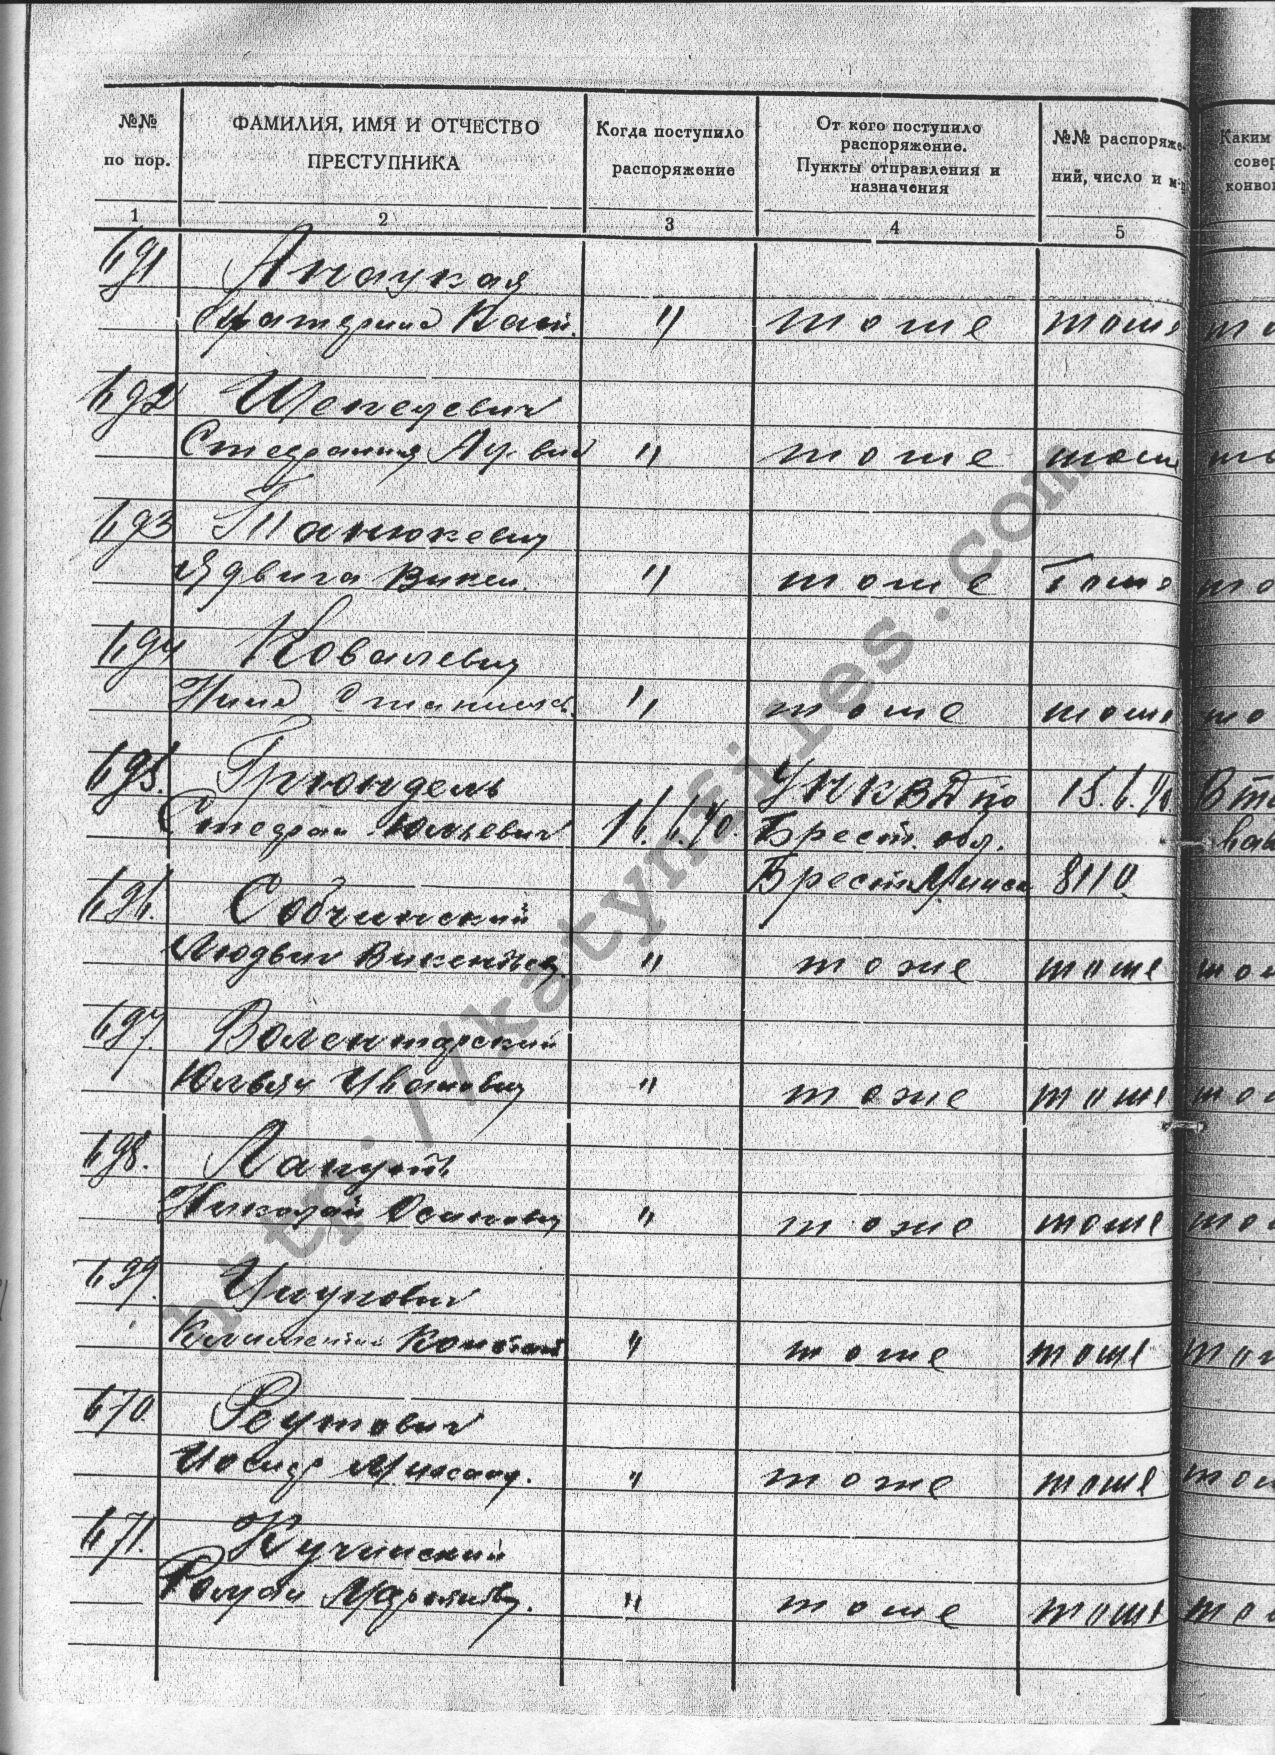 №№
по пор.
ФАМИЛИЯ, ИМЯ И ОТЧЕСТВО
ПРЕСТУПНИКА
Когда поступило
распоряжение
От кого поступило
распоряжение.
Пункты отправления и
назначения
№№ распоряже-
ний, число и м-ц
Каким
совер
конво
1 2 3 4 5
691
Катерина " тоже тоже то
692
Стефания " тоже тоже то
693 Танюкевич
Ядвига Викен. " тоже Тоже то
694 Ковалевич
Нина Станисл. " тоже тоже то
695. Грюндель УНКВД по 15.6.40 Вто
Стефан Юльевич 16.6.40. Брест. обл. ва
Брест Минск 8110
696. Собчинский
Людвиг Викентьев. " тоже тоже то
697. Волентарский
Юльян Иванович " тоже тоже то
698. Лапуть
Николай Осипович " тоже тоже то
699.
" тоже тоже то
670. Реутович
" тоже тоже то
671. Кучинский
Роман " тоже тоже то
http://katynfiles.com